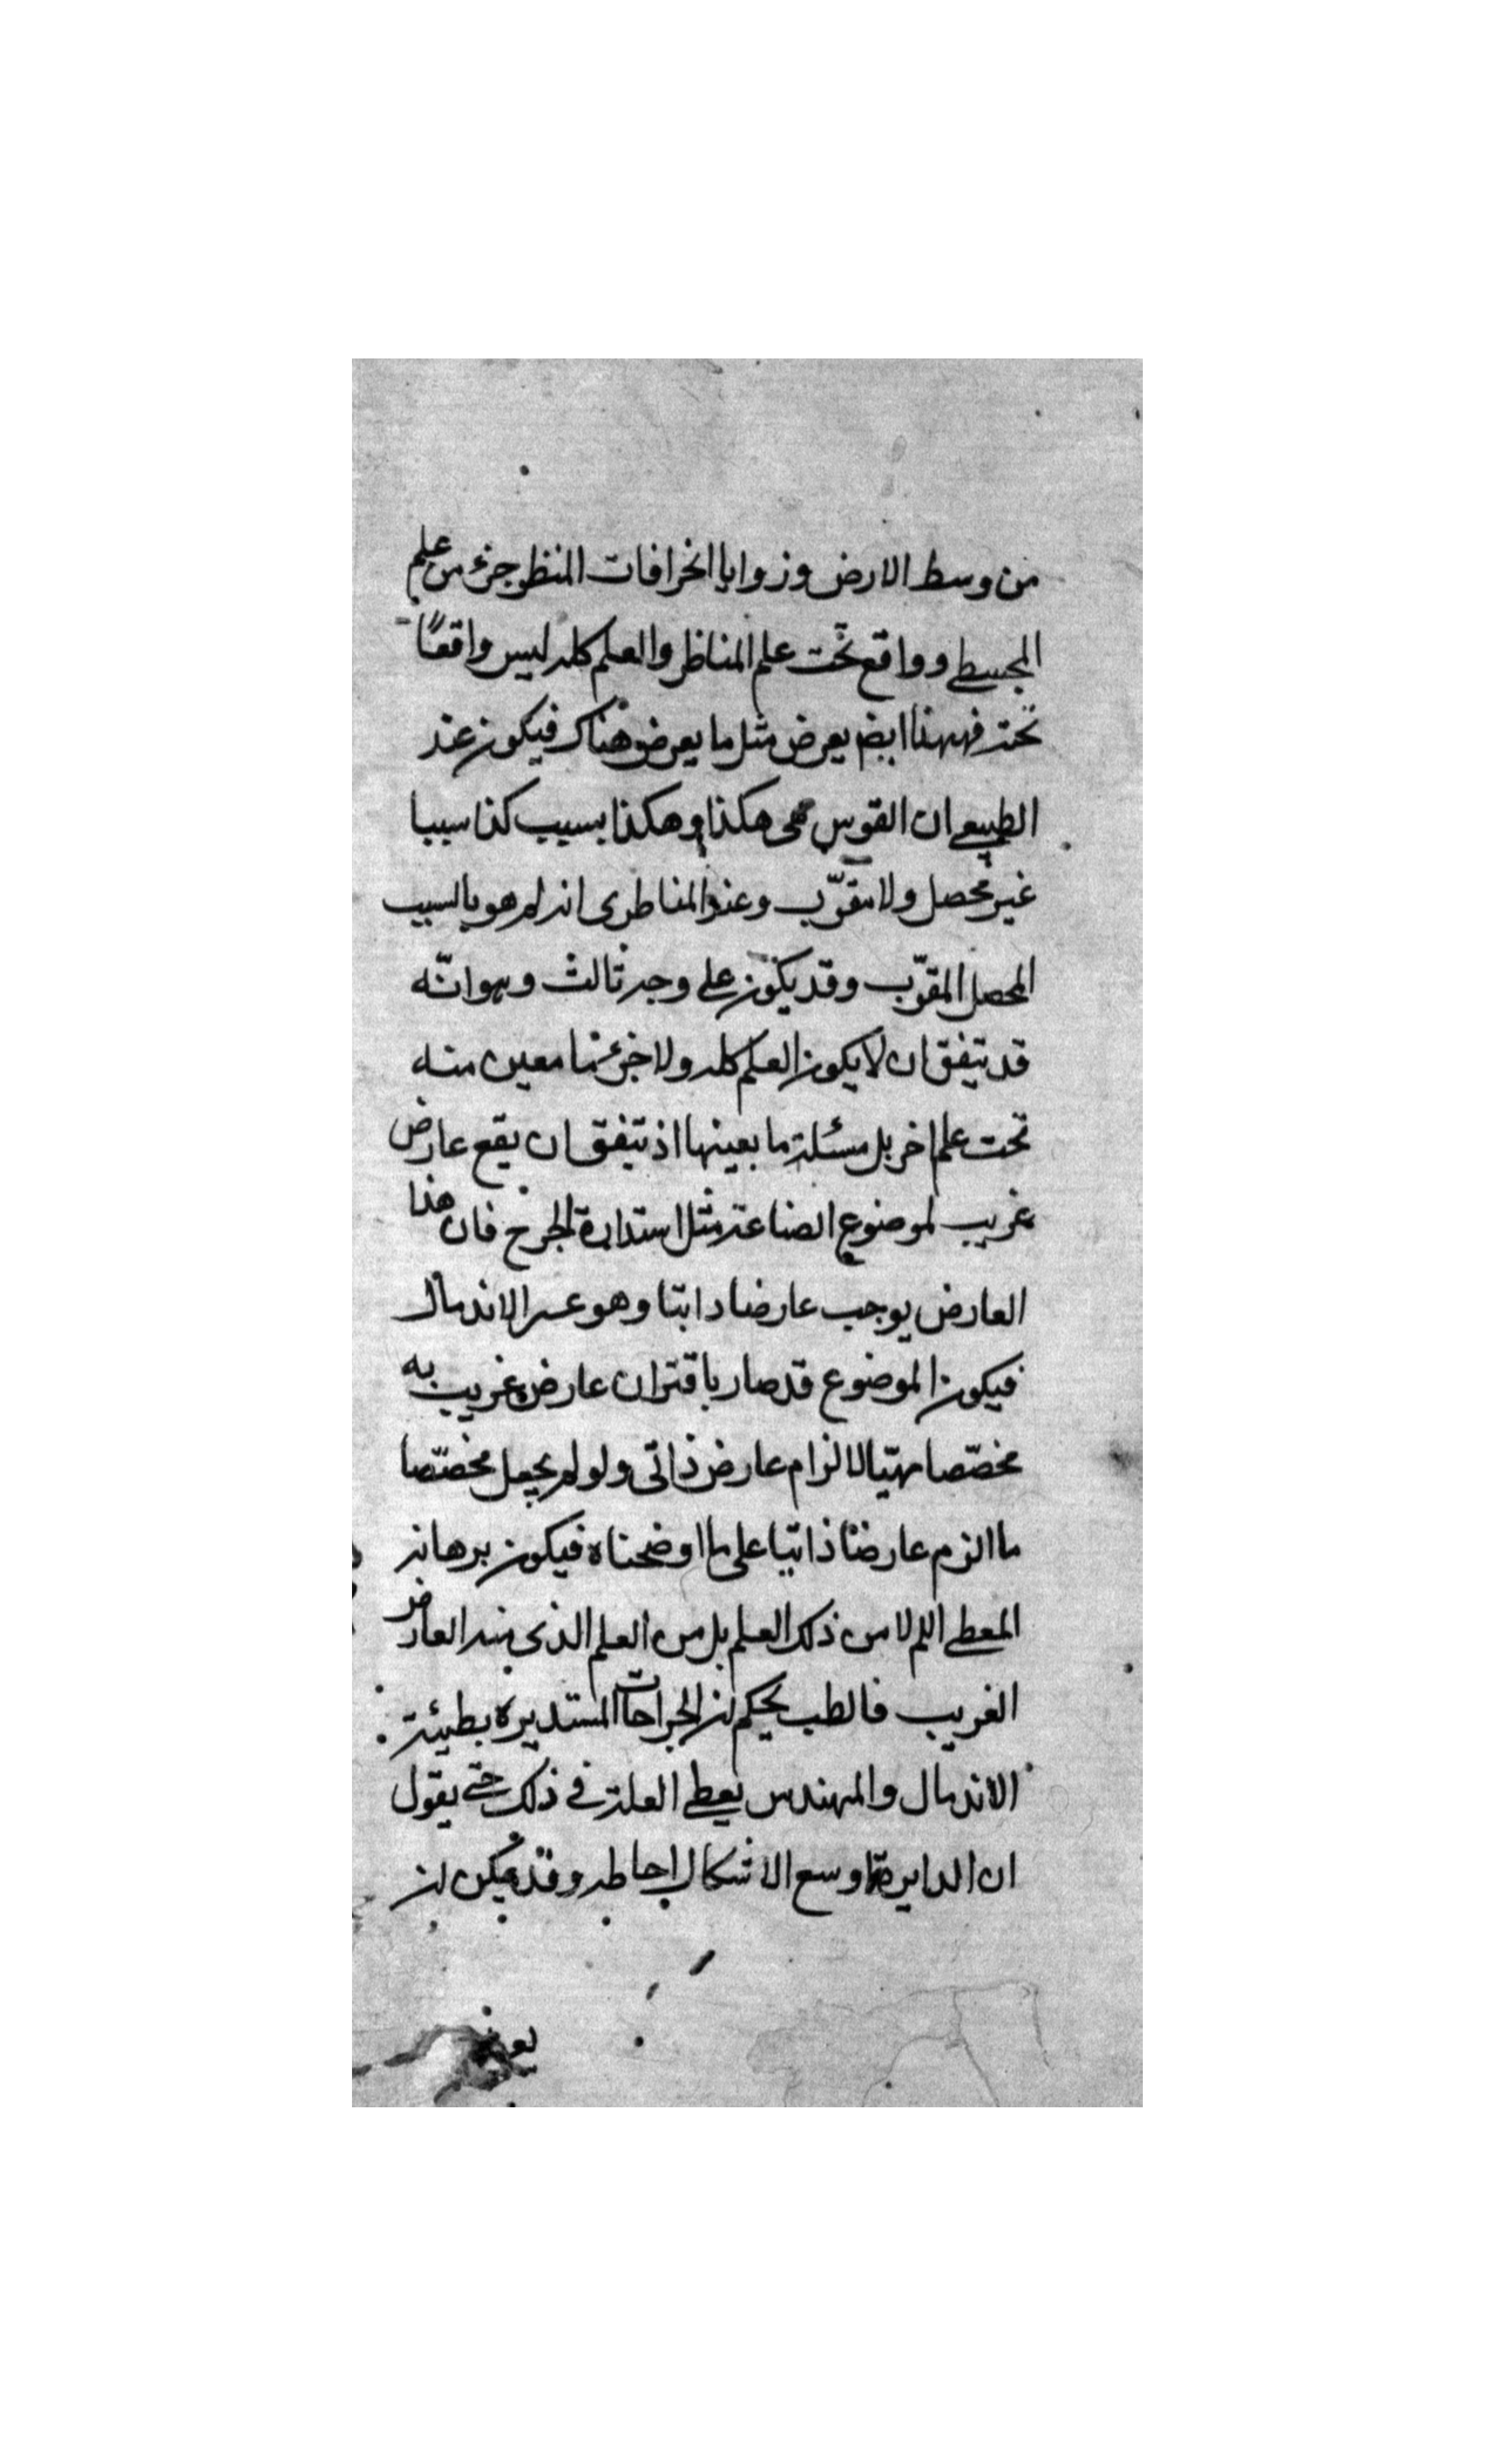 من وسط الارض وزوايا انحرافات المنظر جزء من علم
المجسطى وواقع تحت علم المناظر والعلم كله ليس واقعًا
تحته فههنا ايضا يعرض مثل ما يعرض هناك فيكون عند
الطبيعى ان القوس هى هكذا وهكذا بسبب كذا سببا
غير محصل ولا مقرّب وعند المناظرى انه لم هو بالسبب
المحصل المقرّب وقد يكون على وجه ثالث وهو انّه
قد يتفق ان لا يكون العلم كله ولا جزء ما معين منه
تحت علم اخر بل مسئلة ما بعينها اذ يتفق ان يقع عارض
غريب لموضوع الصناعة مثل استدارة الجرح فان هذا
العارض يوجب عارضا ذاتيا وهو عسر الاندمال
فيكون الموضوع قد صار باقتران عارض غريب به
مخصّصا مهيّا لالزام عارض ذاتى ولو لم يجعل مخصّصا
ما الزم عارضا ذاتيا على ما اوضحناه فيكون برهانه
المعطى اللم لا من ذلك العلم بل من العلم الذى منه العارض
الغريب فالطب يحكم ان الجراحات المستديره بطيئة
الاندمال والمهندس يعطى العلة فى ذلك حتى يقول
ان الدايرة اوسع الاشكال احاطه وقد يمكن ان